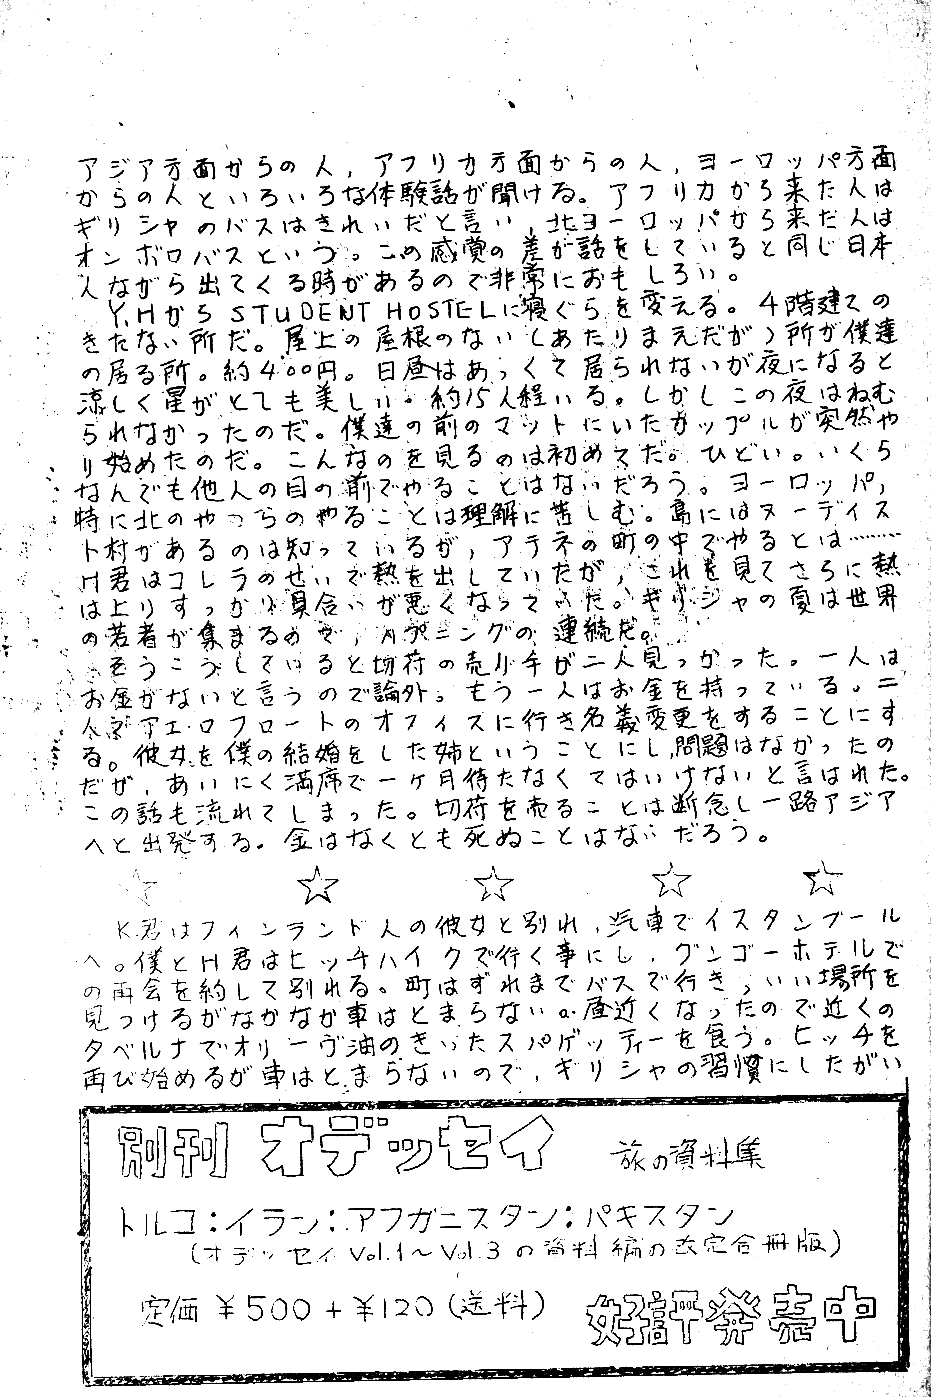 アジア方面からの人，アフリカ方面からの人，ヨーロッパ方面
からの人といろいろな体験話が聞ける。アフリカから来た人は
ギリシャのバスはきれいだと言い，北ヨーロッパから来た人は
オンボロバスという。この感覚の差が話をしていると同じ日本
人ながら出てくる時があるので非常におもしろい。
Y.HからSTUDENT HOSTELに寝ぐらを変える。4階建ての
きたない所だ。屋上の屋根のない
所が僕達
の居る所。約400円。日昼はあつくて居られないが夜になると
涼しく星がとても美しい。約15人程いる。しかしこの夜はねむ
られなかったのだ。僕達の前のマットにいたカップルが突然や
り始めたのだ。こんなのを見るのは初めてだ。ひどい。いくら
なんでも他人の目の前でやることはないだろう。ヨーロッパ，
特に北のやつらのやることは理解に苦しむ。島にはヌーディス
ト村があるのは知っているが，アテネの町の中でやるとは………
H君はコレラのせいで熱を出していたが，これを見てさらに熱
は上りすっかり具合いが悪くなっていた。ギリシャの夏は世界
の若者が集まるので，ハプニングの連続だ。
そうこうしているとき切符の売り手が二人見つかった。一人は
お金がないと言うので論外。もう一人はお金を持っている。二
人でアエロフロートのオフィスに行き名義変更をすることにす
る。彼女を僕の結婚をした姉ということにし，問題はなかったの
だが，あいにく満席で一ヶ月待たなくてはいけないと言はれた。
この話も流れてしまった。切符を売ることは断念し一路アジア
へと出発する。金はなくとも死ぬことはないだろう。
☆ ☆ ☆ ☆ ☆
K君はフィンランド人の彼女と別れ，汽車でイスタンブール
へ。僕とH君はヒッチハイクで行く事にし，グンゴーホテルで
の再会を約して別れる。町はずれまでバスで行き，いい場所を
見つけるがなかなか車はとまらない。昼近くなったので近くの
タベルナでオリーヴ油のきいたスパゲッティーを食う。ヒッチを
再び始めるが車はとまらないので，ギリシャの習慣にしたがい
別刊 オデッセイ 旅の資料集
トルコ：イラン：アフガニスタン：パキスタン
（オデッセイ Vol.1～Vol.3の資料編の改定合冊版）
定価 ￥500＋￥120（送料） 好評発売中